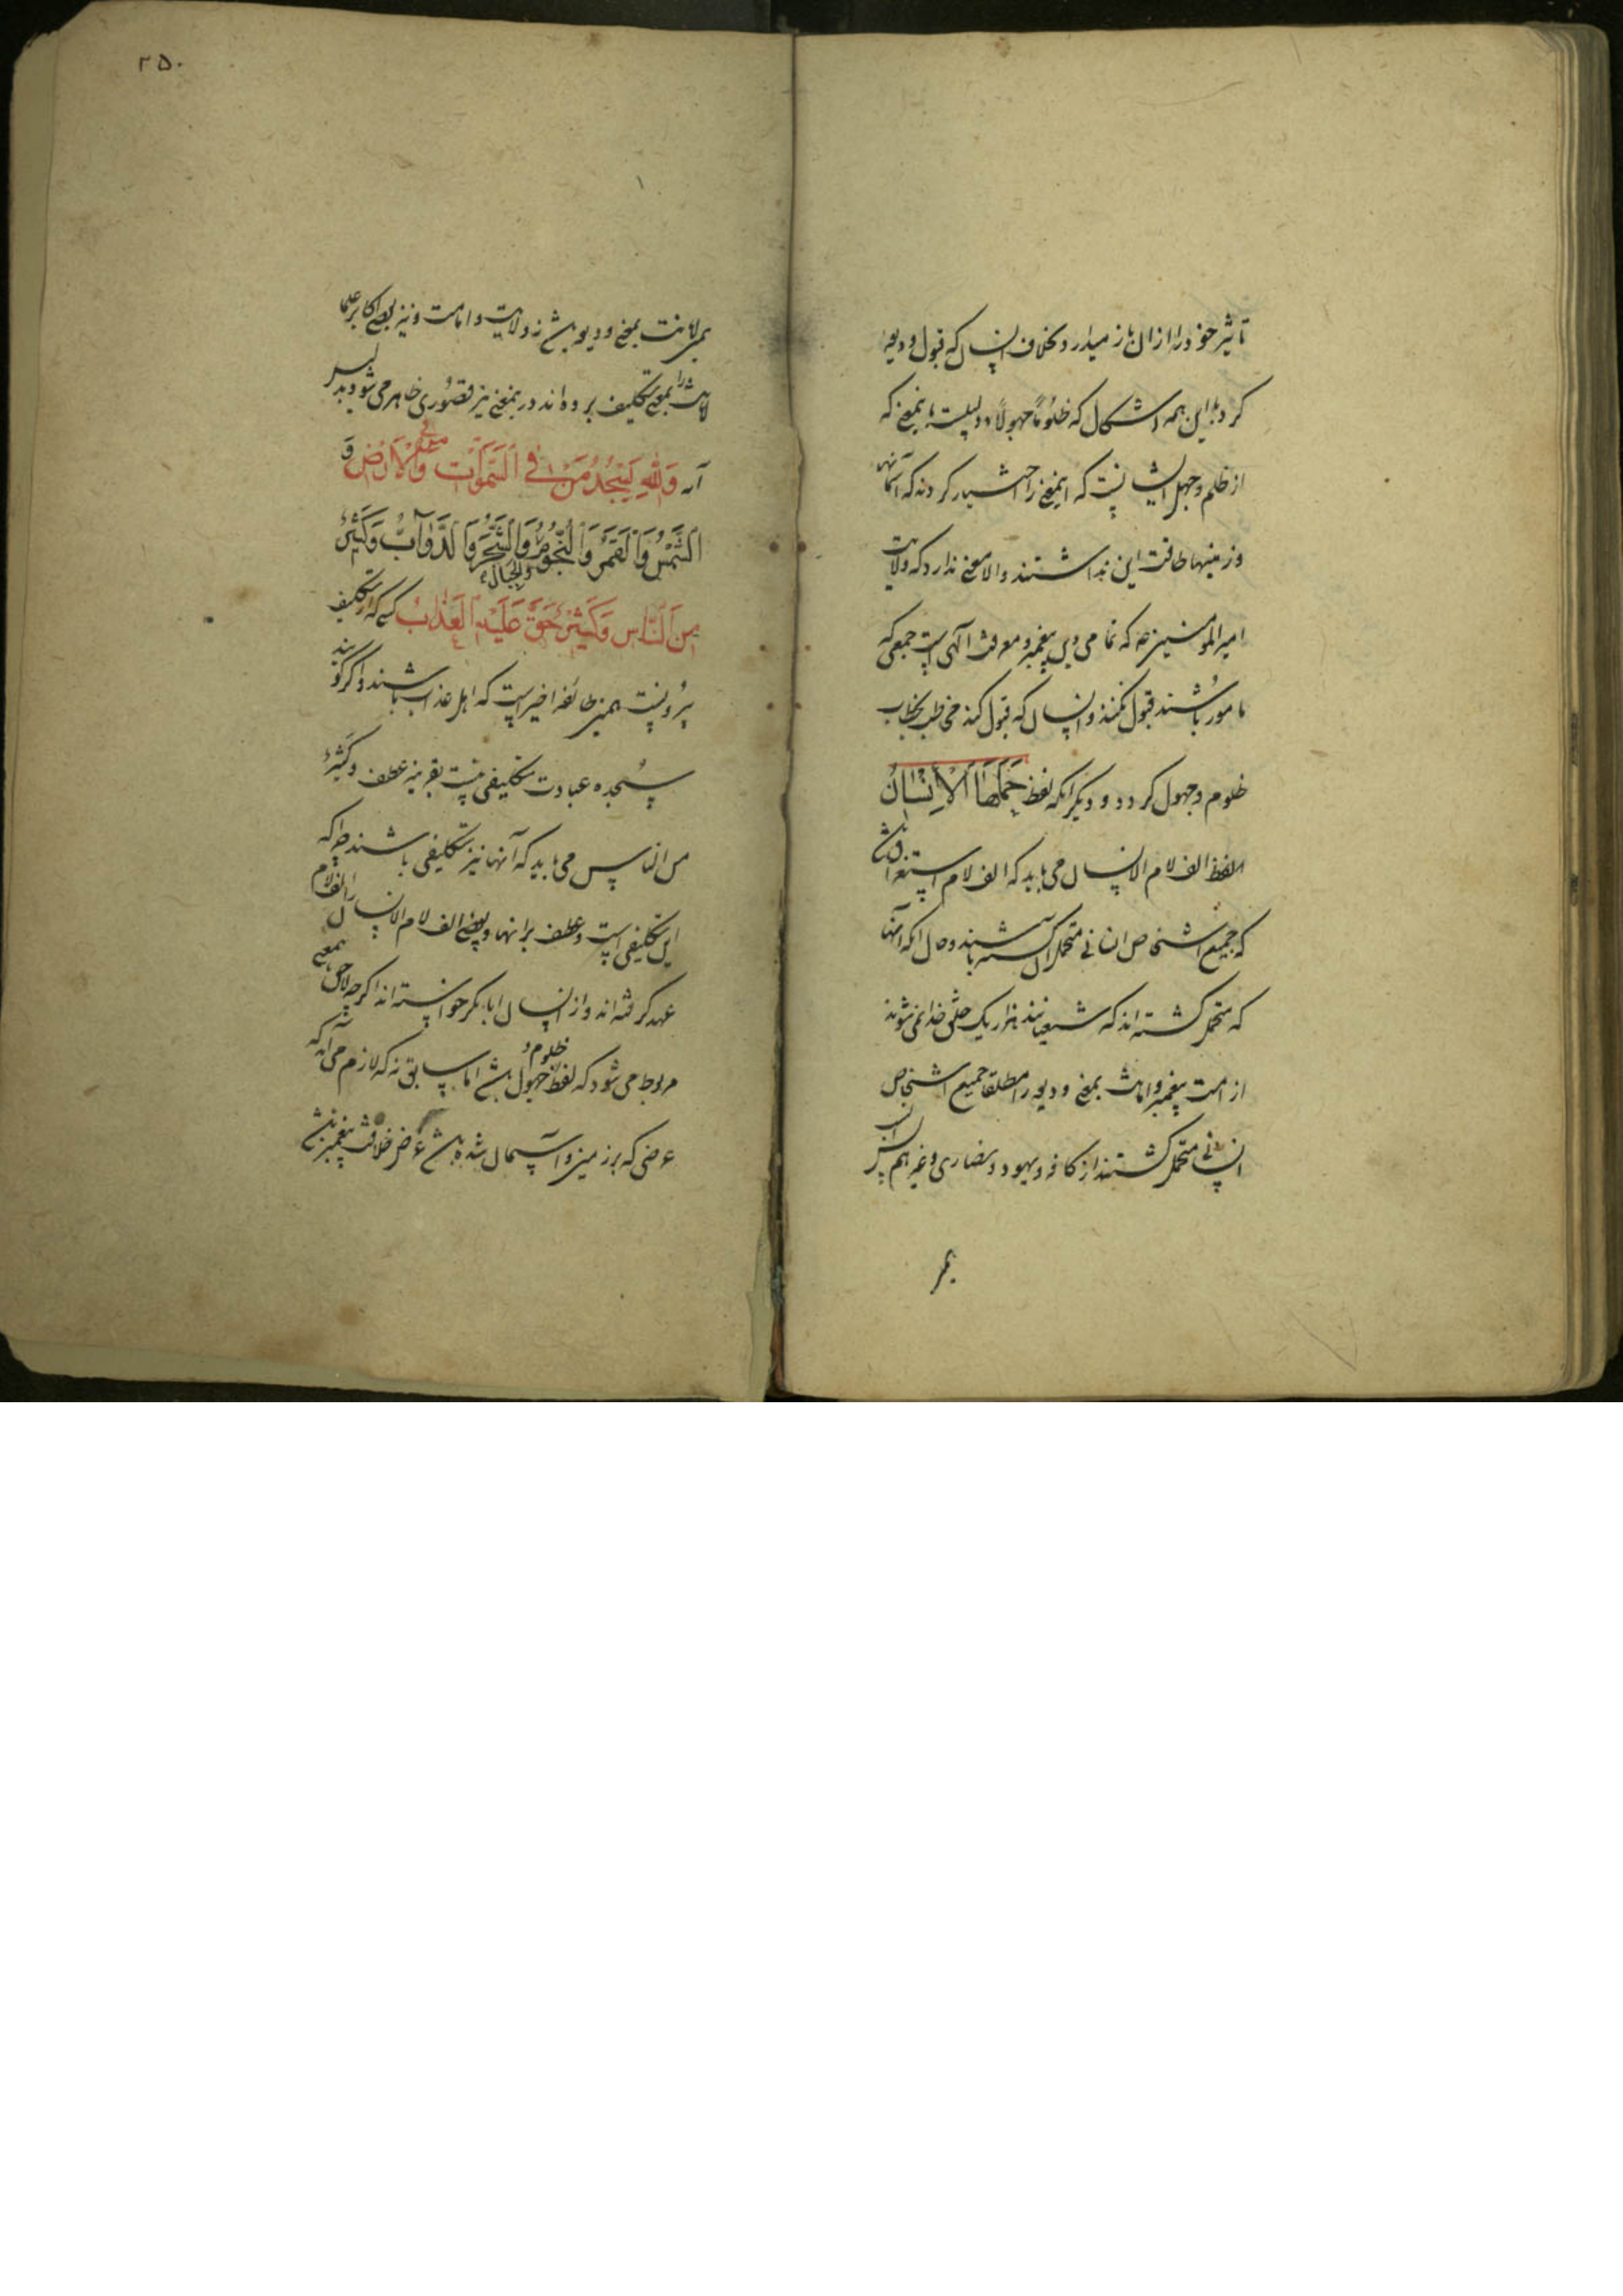 تاثیر خود را از ان باز میدارد بخلاف انسان که قبول ودیعه
کرد با این همه اشکال که ظَلُومًا جهولًا
از ظلم و جهل ایشانست که اینمعنی را اختیار کردند که آسمانها
و زمینها طاقت این نداشتند والا معنی ندارد که ولایت
امیر المومنین که تمامی دین پیغمبر و معرفت الهی است جمعی که
مامور باشند قبول نکنند و انسان که قبول کند مخاطب بخطاب
ظلوم و جهول کردد و دیکر انکه لفظ حَمَلَهَا الْاِنْسَانُ
لفظ الف لام الانسان می باید که الف لام استغراق باشد
که جمیع اشخاص انسانی متحمل ان باشند و حال انکه آنها
که متحمل کشته اند که شیعیانند هزار یک خلق خدا نمی شوند
از امت پیغمبر و امانت بمعنی ودیعه را مطلقا جمیع اشخاص
انسانی متحمل کشتند از کافر و یهود و نصاری و غیر هم
۲۵۰
امانت بمعنی ودیعه باشد نه ولایت و امامت و نیز بعضی اکابر علما
امانت را بمعنی تکلیف برده اند در بمعنی نیز قصوری ظاهر می شود بدلیل
آیه وَلِلّٰهِ يَسْجُدُ مَنْ فِي السَّمٰوَاتِ وَمَنْ فِي الْاَرْضِ وَ
الشَّمْسُ وَالْقَمَرُ وَالنُّجُومُ وَالْجِبَالُ وَالشَّجَرُ وَالدَّوَآبُّ وَكَثِيرٌ
مِنَ النَّاسِ وَكَثِيرٌ حَقَّ عَلَيْهِ الْعَذَابُ کسی که از تکلیف
بیرونست همین طائفه اخیر است که اهل عذاب باشند و اکر کویند
سجده عبادت تکلیفی نیست بقرینه عطف وَكَثِيرٌ
من الناس می باید که آنها نیز تکلیفی باشند چرا که
این تکلیفی است و عطف برانها و بعضی الف لام الانسان را الف لام
عهد کرفته اند و از انسان ابابکر خواسته اند اکرچه بمعنی
مربوط می شود که لفظ ظلوم و جهول باشد اما سابق نه که لازم می آید که
عرضی که بر زمین و آسمان شده باشد عرض خلافت پیغمبر باشد